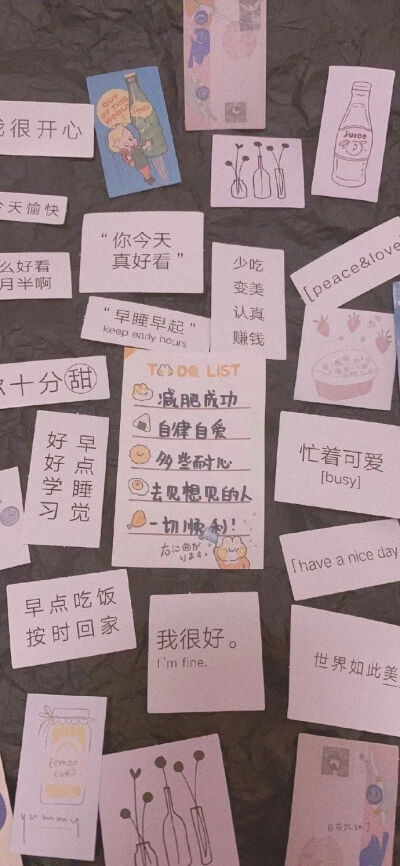 很开心
OUT
OF THIS
WORLD
JUICE
天愉快
"你今天
真好看"
少吃
变美
认真
赚钱
[peace&love
么好看
月半啊
"早睡早起"
keep early hours
十分甜
TO DO LIST
减肥成功
自律自爱
多些耐心
去见想见的人
一切顺利!
早点睡觉
好好学习
忙着可爱
[busy]
「have a nice day
早点吃饭
按时回家
我很好。
I'm fine.
世界如此美
lemon
CURD
yummy